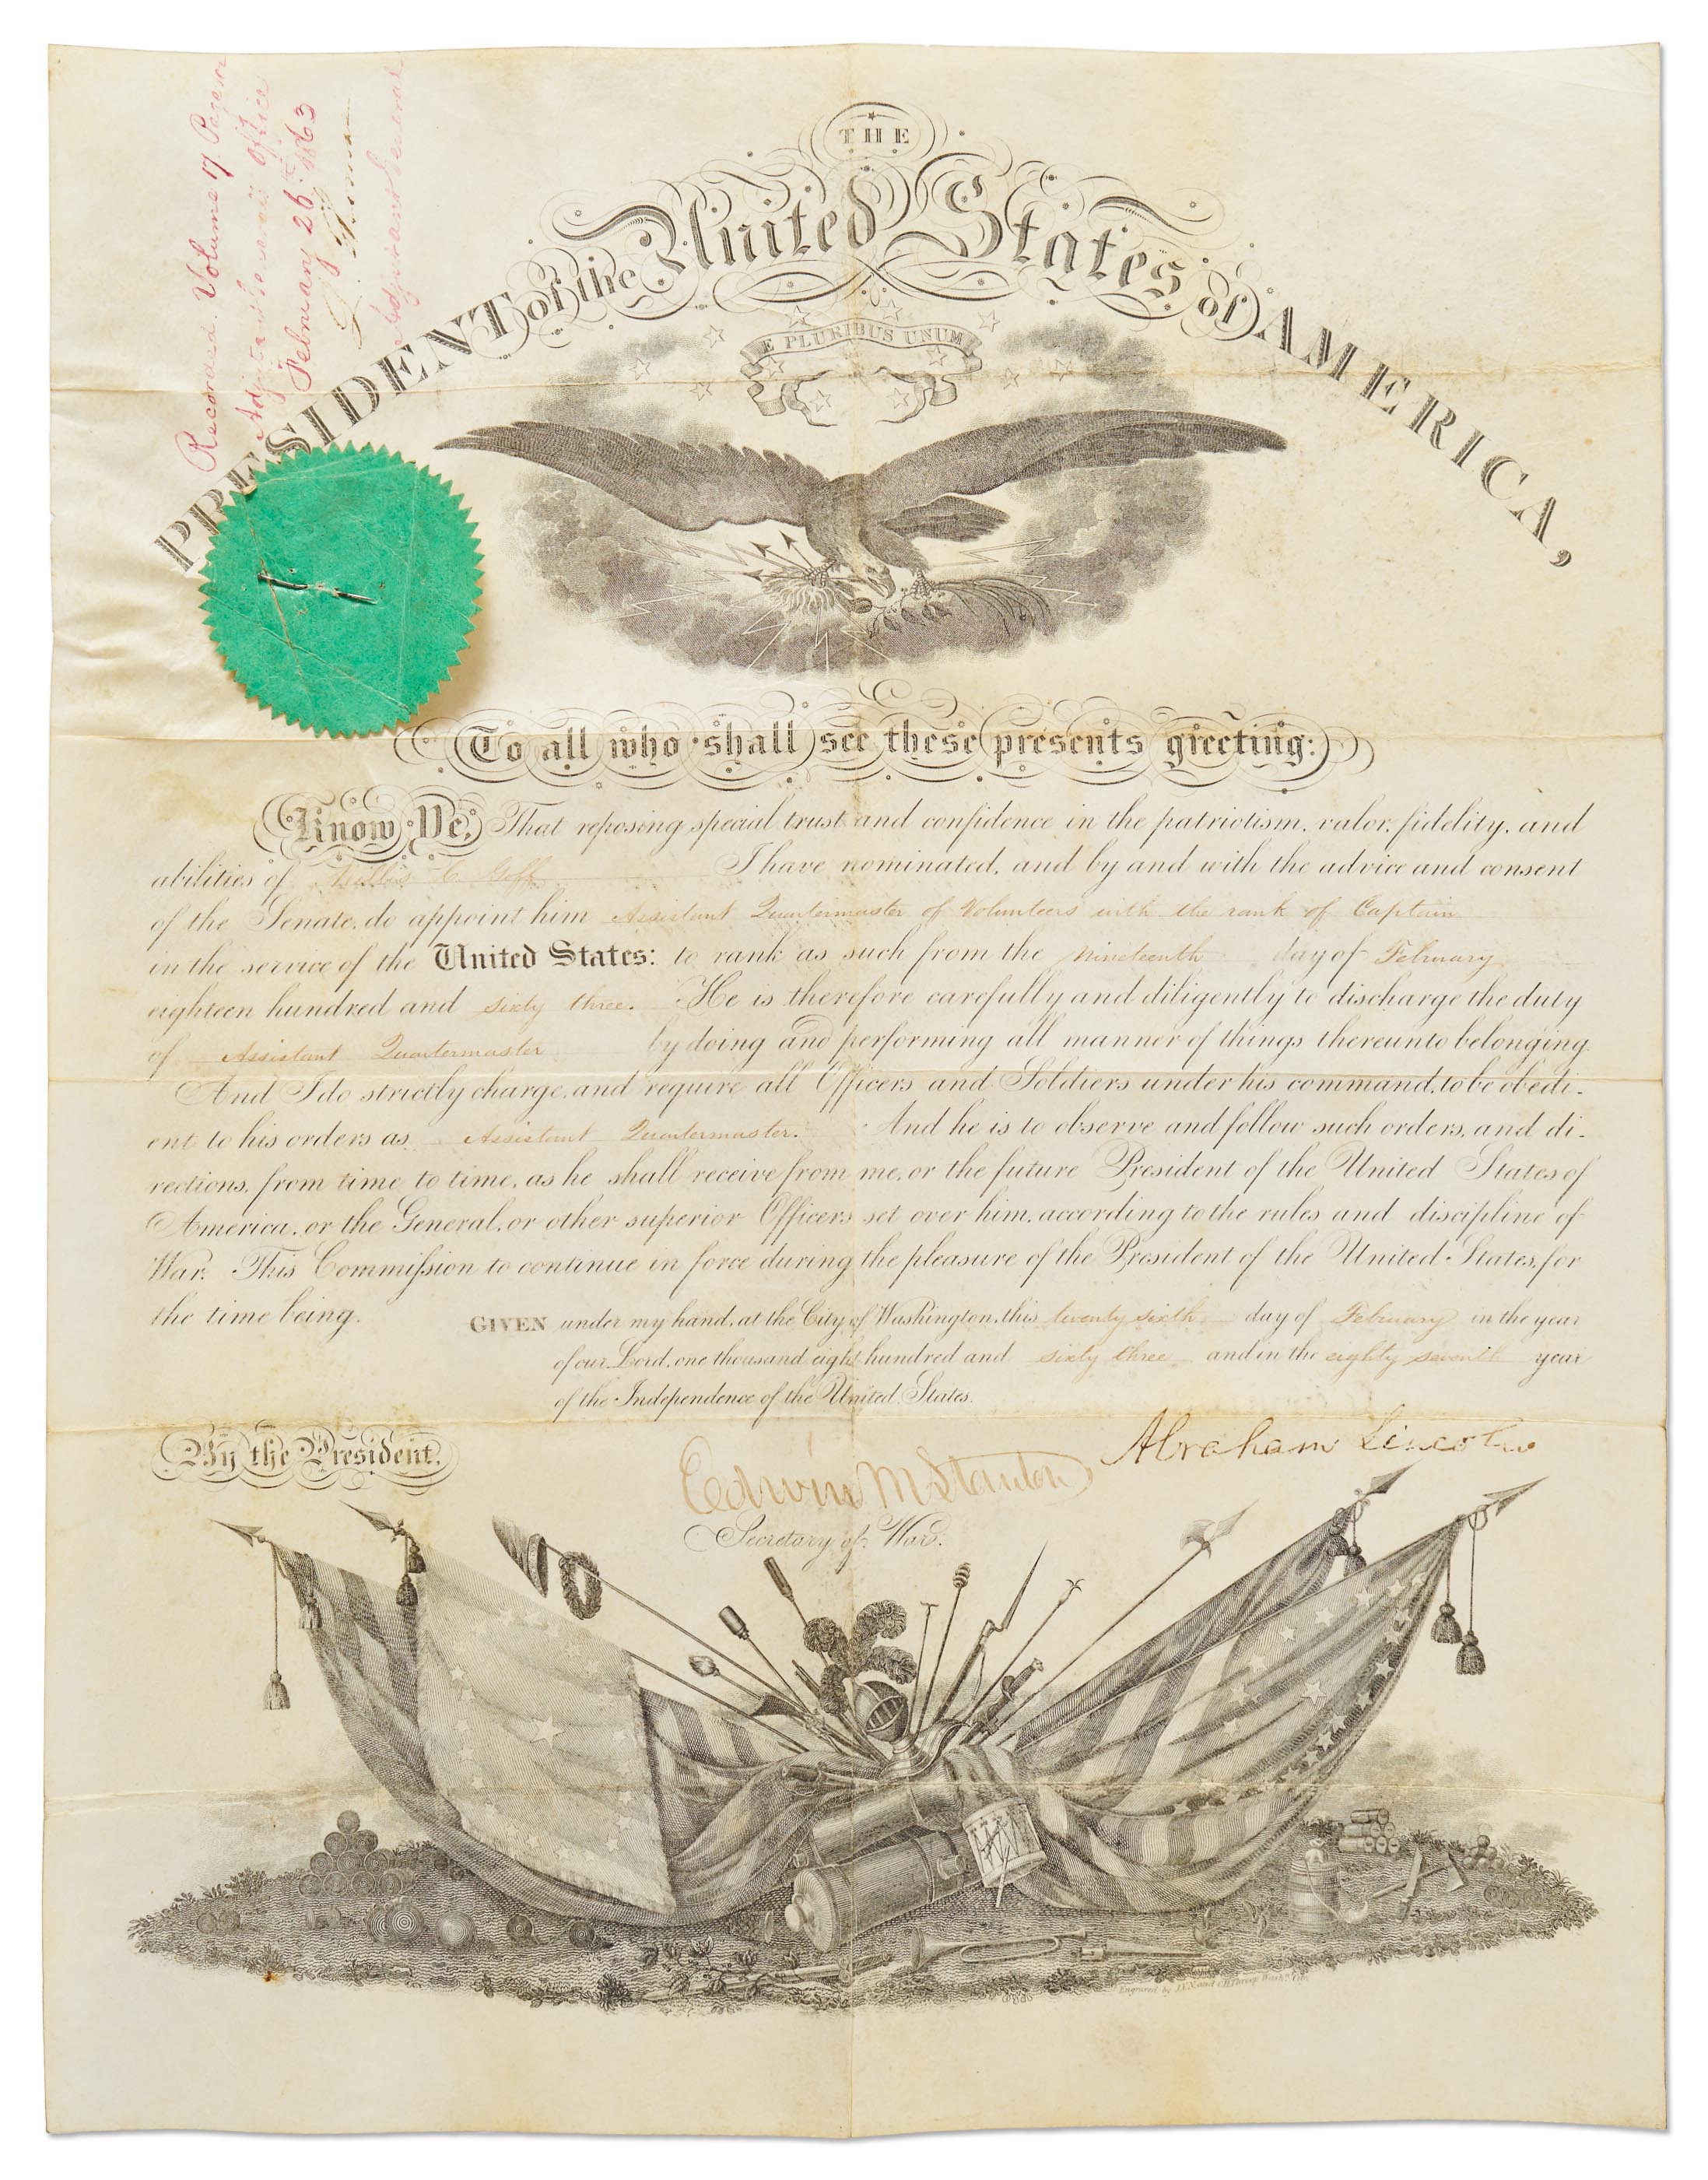 Recorded. Volume 17 Page
Adjutant General's Office
February 26th 1863
L. Thomas
Adjutant General
THE
PRESIDENT of the United States of AMERICA,
E PLURIBUS UNUM
To all who shall see these presents greeting:
Know Ye, That reposing special trust and confidence in the patriotism, valor, fidelity, and
abilities of Willis C. Goff I have nominated, and by and with the advice and consent
of the Senate, do appoint him Assistant Quartermaster of Volunteers with the rank of Captain
in the service of the United States: to rank as such from the nineteenth day of February
eighteen hundred and sixty three. He is therefore carefully and diligently to discharge the duty
of Assistant Quartermaster by doing and performing all manner of things thereunto belonging.
And I do strictly charge, and require all Officers and Soldiers under his command, to be obedi-
ent to his orders as Assistant Quartermaster. And he is to observe and follow such orders, and di-
rections, from time to time, as he shall receive from me, or the future President of the United States of
America, or the General, or other superior Officers set over him, according to the rules and discipline of
War. This Commission to continue in force during the pleasure of the President of the United States, for
the time being.
GIVEN under my hand, at the City of Washington, this twenty sixth day of February in the year
of our Lord, one thousand eight hundred and sixty three and in the eighty seventh year
of the Independence of the United States.
By the President,
Abraham Lincoln
Edwin M Stanton
Secretary of War.
Engraved by J.V.N. and O.H. Throop Washn. City